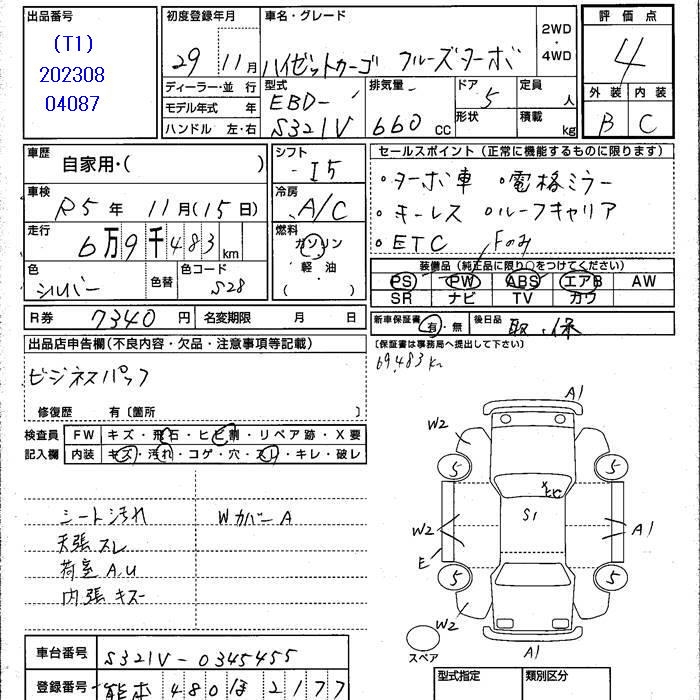 出品番号
(T1)
202308
04087
初度登録年月
29年11月
車名・グレード
ハイゼットカーゴ クルーズターボ
2WD
・
4WD
評価点
4
外装 内装
B C
ディーラー・並行
モデル年式 年
ハンドル 左・右
型式
EBD-
S321V
排気量
660cc
ドア
5
形状
定員
人
積載
kg
車歴
自家用・( )
車検
R5年 11月(15日)
走行
6万9千483km
色
シルバー
色替
色コード
S28
シフト
I5
冷房
A/C
燃料
ガソリン
・
軽油
( )
セールスポイント(正常に機能するものに限ります)
・ターボ車 ・電格ミラー
・キーレス ・ルーフキャリア
・ETC Fのみ
装備品(純正品に限り○をつけてください)
PS PW ABS エアB AW
SR ナビ TV カワ
R券 7340円 名変期限 月 日
新車保証書 有・無 後日品 取・保
(保証書は事務局へ提出して下さい)
69,483km
出品店申告欄(不良内容・欠品・注意事項等記載)
ビジネスパック
修復歴 有〔箇所 〕
検査員
記入欄
FW キズ・飛石・ヒビ割・リペア跡・X要
内装 キズ・汚れ・コゲ・穴・スレ・キレ・破レ
シート汚れ Wカバー A
天張スレ
荷室A,U
内張キズ
A1
W2
5 5
S1
W2
A1
E
5 5
W2
A1
スペア
車台番号 S321V-0345455
登録番号 熊本 480 ほ 2177
型式指定 類別区分